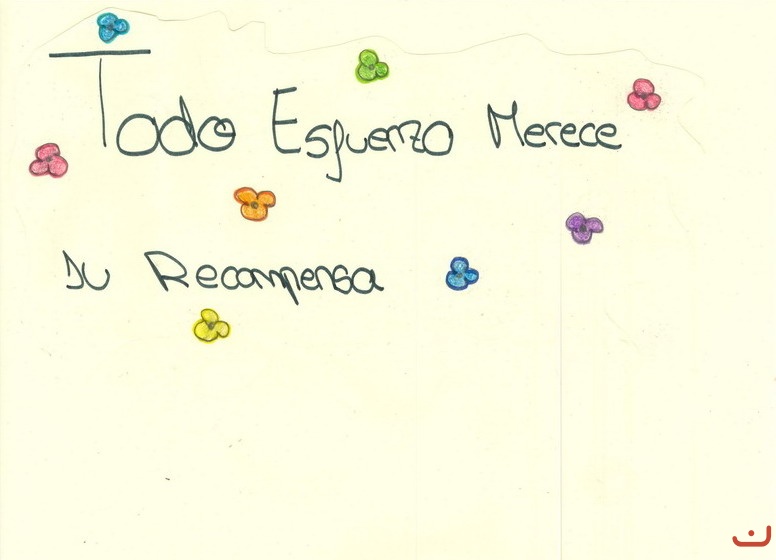 Todo Esfuerzo Merece
Su Recompensa